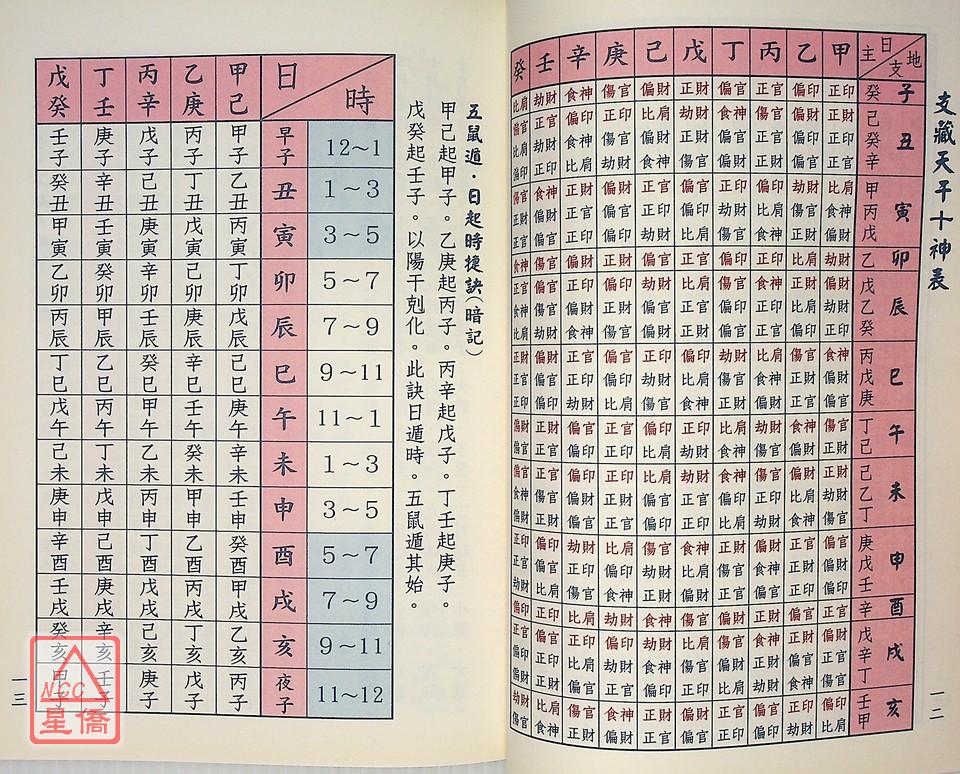 支藏天干十神表
地支 日主 甲 乙 丙 丁 戊 己 庚 辛 壬 癸
子 癸 正印 偏印 正官 偏官 正財 偏財 傷官 食神 劫財 比肩
丑 己 正財 偏財 傷官 食神 劫財 比肩 正印 偏印 正官 偏官
癸 正印 偏印 正官 偏官 正財 偏財 傷官 食神 劫財 比肩
辛 正官 偏官 正財 偏財 傷官 食神 劫財 比肩 正印 偏印
寅 甲 比肩 劫財 偏印 正印 偏官 正官 偏財 正財 食神 傷官
丙 食神 傷官 比肩 劫財 偏印 正印 偏官 正官 偏財 正財
戊 偏財 正財 食神 傷官 比肩 劫財 偏印 正印 偏官 正官
卯 乙 劫財 比肩 正印 偏印 正官 偏官 正財 偏財 傷官 食神
辰 戊 偏財 正財 食神 傷官 比肩 劫財 偏印 正印 偏官 正官
乙 劫財 比肩 正印 偏印 正官 偏官 正財 偏財 傷官 食神
癸 正印 偏印 正官 偏官 正財 偏財 傷官 食神 劫財 比肩
巳 丙 食神 傷官 比肩 劫財 偏印 正印 偏官 正官 偏財 正財
戊 偏財 正財 食神 傷官 比肩 劫財 偏印 正印 偏官 正官
庚 偏官 正官 偏財 正財 食神 傷官 比肩 劫財 偏印 正印
午 丁 傷官 食神 劫財 比肩 正印 偏印 正官 偏官 正財 偏財
己 正財 偏財 傷官 食神 劫財 比肩 正印 偏印 正官 偏官
未 己 正財 偏財 傷官 食神 劫財 比肩 正印 偏印 正官 偏官
乙 劫財 比肩 正印 偏印 正官 偏官 正財 偏財 傷官 食神
丁 傷官 食神 劫財 比肩 正印 偏印 正官 偏官 正財 偏財
申 庚 偏官 正官 偏財 正財 食神 傷官 比肩 劫財 偏印 正印
戊 偏財 正財 食神 傷官 比肩 劫財 偏印 正印 偏官 正官
壬 偏印 正印 偏官 正官 偏財 正財 食神 傷官 比肩 劫財
酉 辛 正官 偏官 正財 偏財 傷官 食神 劫財 比肩 正印 偏印
戌 戊 偏財 正財 食神 傷官 比肩 劫財 偏印 正印 偏官 正官
辛 正官 偏官 正財 偏財 傷官 食神 劫財 比肩 正印 偏印
丁 傷官 食神 劫財 比肩 正印 偏印 正官 偏官 正財 偏財
亥 壬 偏印 正印 偏官 正官 偏財 正財 食神 傷官 比肩 劫財
甲 比肩 劫財 偏印 正印 偏官 正官 偏財 正財 食神 傷官
一二
五鼠遁・日起時捷訣(暗記)
甲己起甲子。乙庚起丙子。丙辛起戊子。丁壬起庚子。
戊癸起壬子。以陽干剋化。此訣日遁時。五鼠遁其始。
時 日 甲己 乙庚 丙辛 丁壬 戊癸
12~1 早子 甲子 丙子 戊子 庚子 壬子
1~3 丑 乙丑 丁丑 己丑 辛丑 癸丑
3~5 寅 丙寅 戊寅 庚寅 壬寅 甲寅
5~7 卯 丁卯 己卯 辛卯 癸卯 乙卯
7~9 辰 戊辰 庚辰 壬辰 甲辰 丙辰
9~11 巳 己巳 辛巳 癸巳 乙巳 丁巳
11~1 午 庚午 壬午 甲午 丙午 戊午
1~3 未 辛未 癸未 乙未 丁未 己未
3~5 申 壬申 甲申 丙申 戊申 庚申
5~7 酉 癸酉 乙酉 丁酉 己酉 辛酉
7~9 戌 甲戌 丙戌 戊戌 庚戌 壬戌
9~11 亥 乙亥 丁亥 己亥 辛亥 癸亥
11~12 夜子 丙子 戊子 庚子 壬子 甲子
一三
NCC
星僑